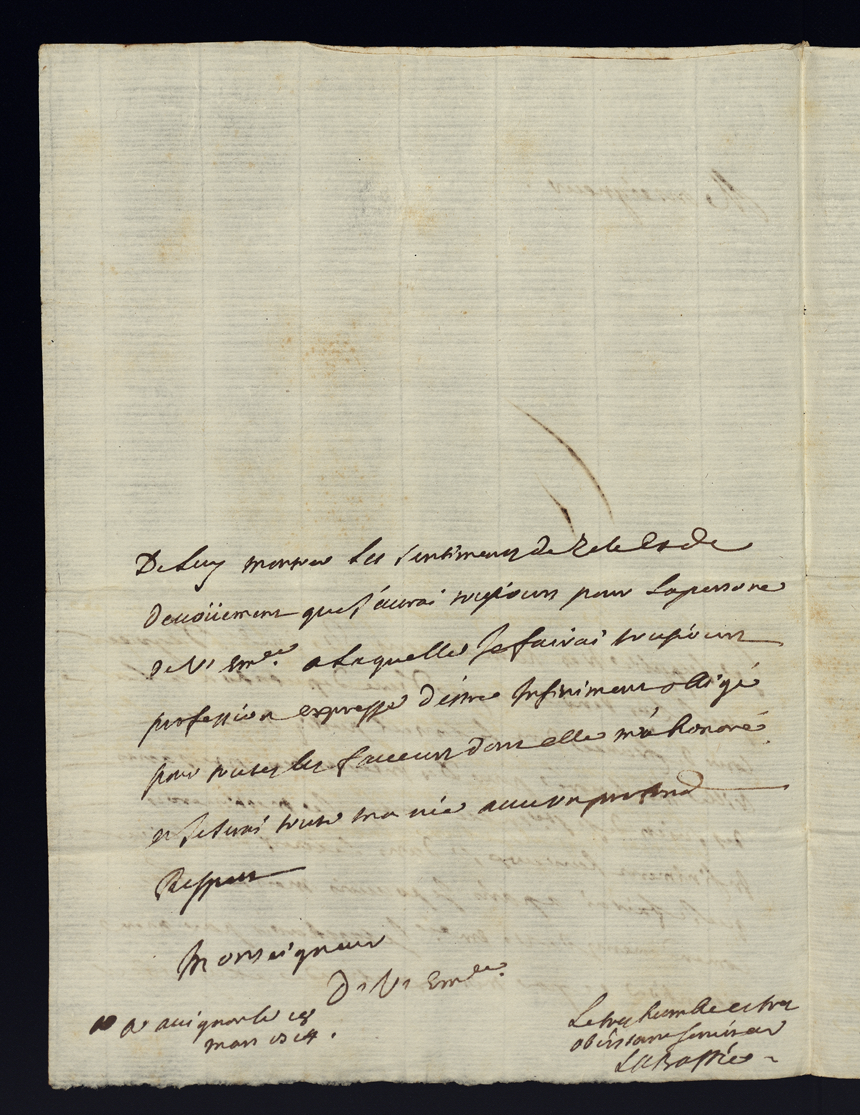 De luy montrer les sentiments de Zele et de
devoüement que J'aurai toujours pour la personne
de V.^e Em.^ce a laquelle Je fairai toujours
profession expresse d'éstre Infiniment obligé
pour toutes les faveurs dont elle m'a honoré
et Je serai toute ma vie avec un profond
Respect
Monseigneur
De V.^e Em.^ce
a avignon le
mars
Le tres humble et tres
obeissant serviteur